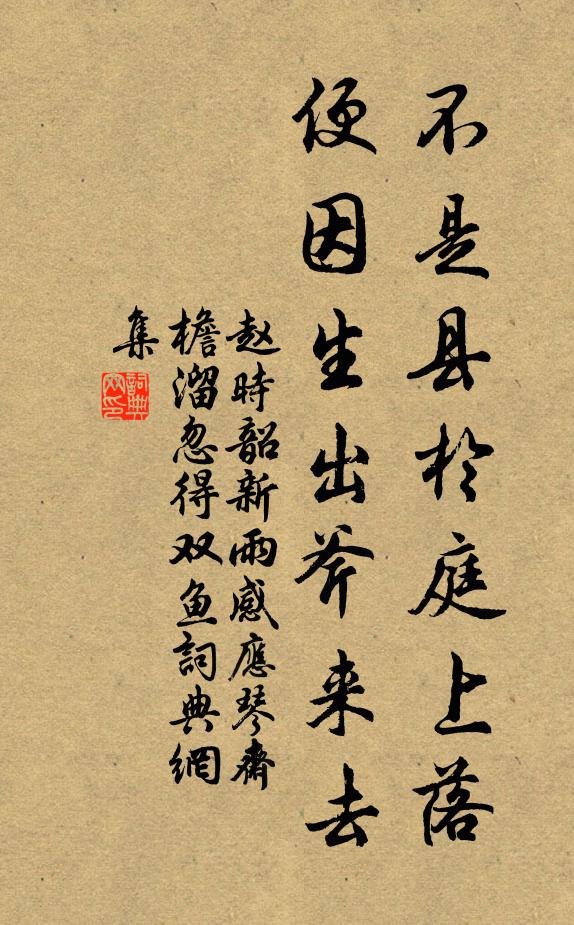 不是县於庭上落
便因生出斧来去
赵時韶新雨感應琴齋
檐溜忽得双鱼詞典網
集
詞典网印